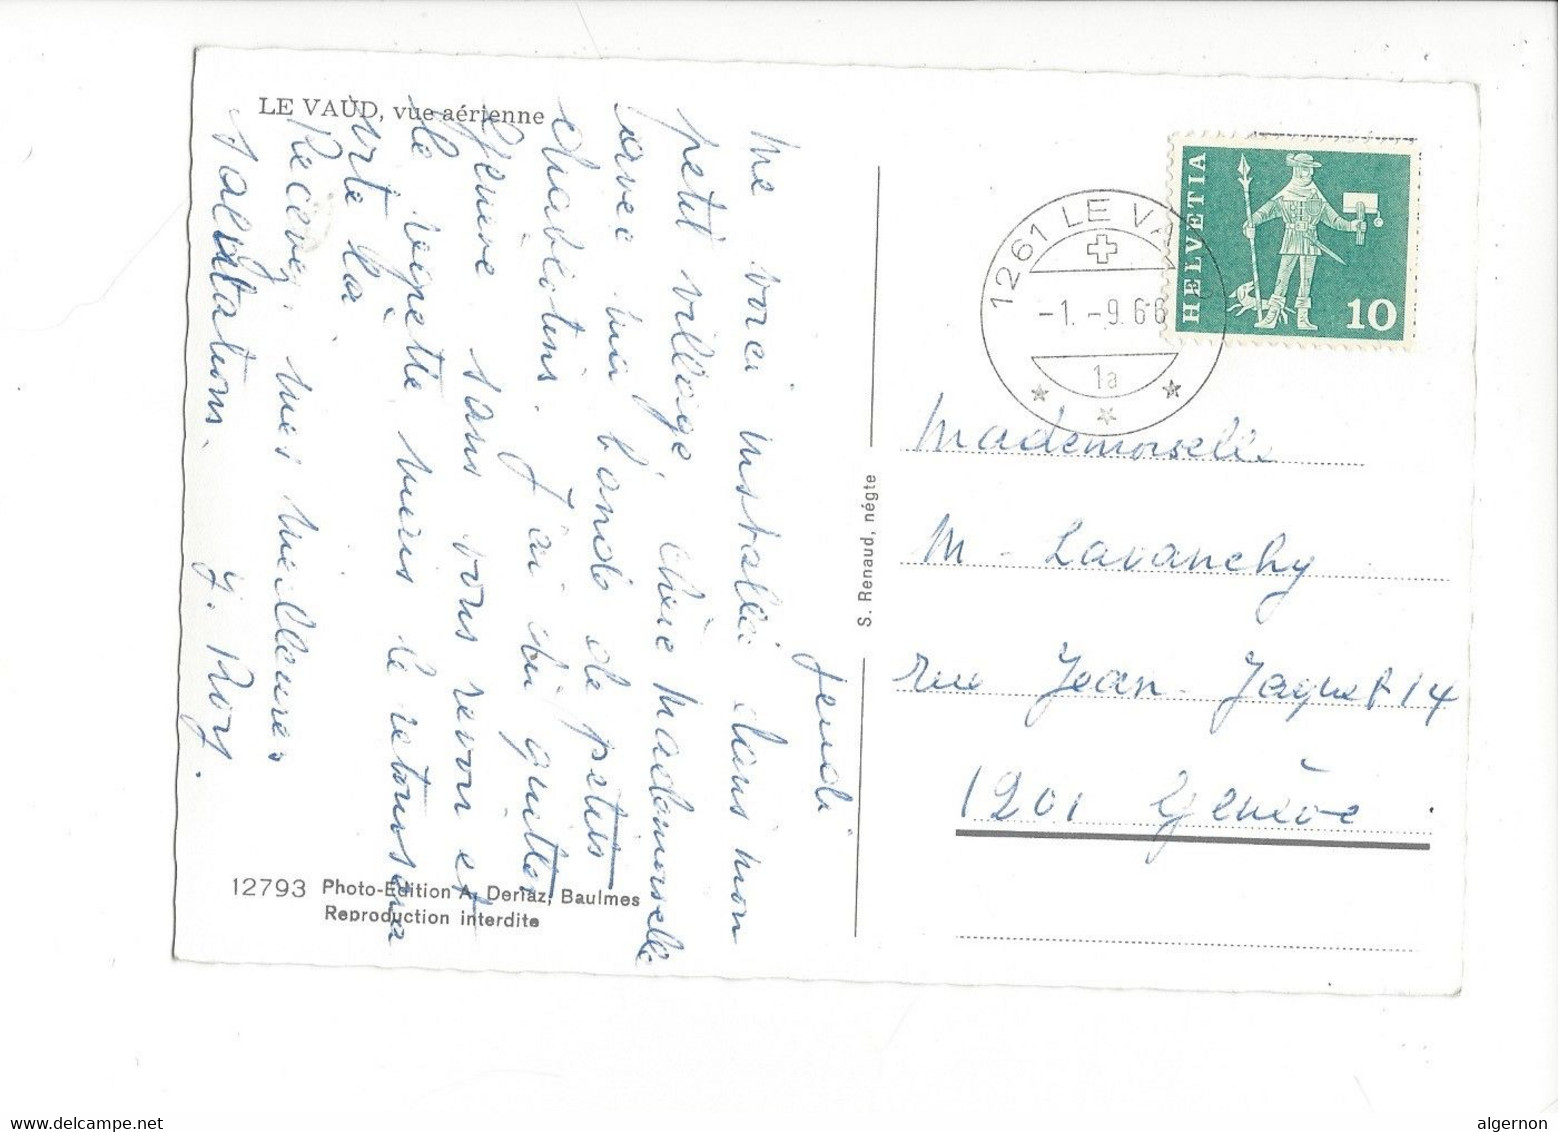 LE VAUD, vue aérienne
jeudi
Me voici installée dans mon
petit village chère Mademoiselle
avec ma bande de petits
diablotins. J'ai dû quitter
Genève sans vous revoir et
le regrette mais le
Recevez mes meilleures
salutations.
J. Roy.
12793 Photo-Edition A. Deriaz, Baulmes
Reproduction interdite
S. Renaud, négte
1261 LE VAUD
-1.-9.66
1a
HELVETIA
10
Mademoiselle
M. Lavanchy
rue Jean Jaquet 14
1201 Genève
delcampe.net
algernon